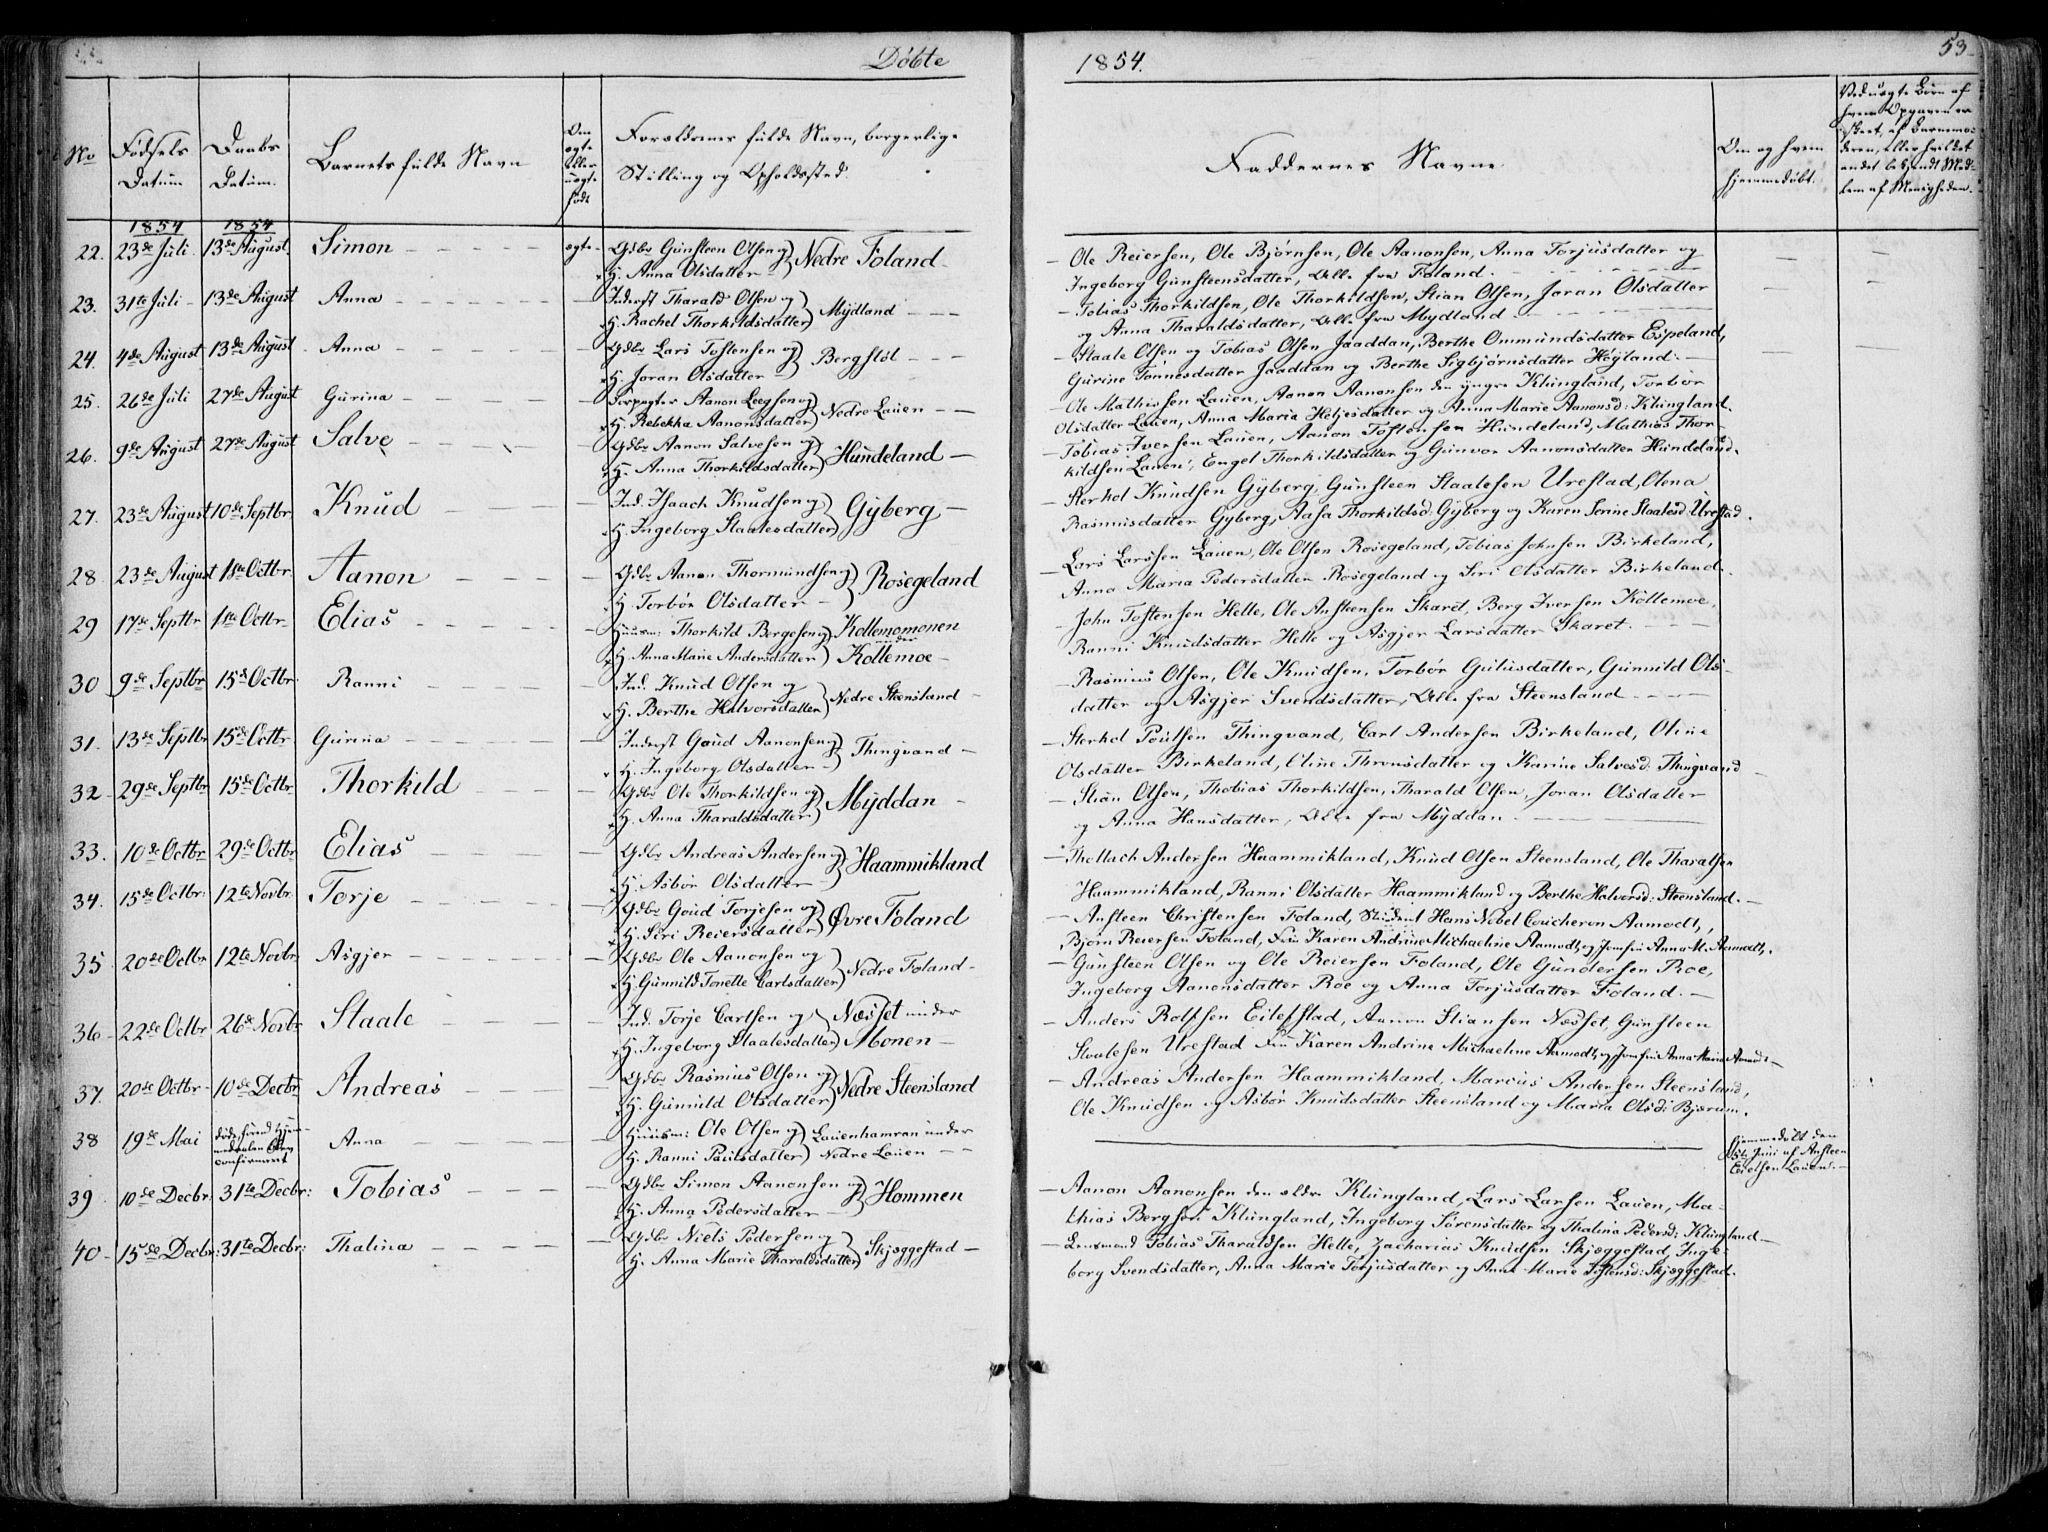 Døbte
1854.
53
No
Fødsels
Datum
Daabs
Datum.
Barnets fulde Navn
Om
ægte
eller
uægte
født
Forældrenes fulde Navn, borgerlige
Stilling og Opholdssted.
Faddernes Navne
Om og hvem
hjemmedøbt.
Ved uægte Børn af
hvem Opgaven er
skeet, af Barnemo-
deren, eller hvilket
andet bekjendt Med-
lem af Menigheden.
1854 1854
22. 23de Juli 13de August Simon ægte Gdbr Gunsteen Olsen og H. Anna Olsdatter Nedre Foland
Ole Reiersen, Ole Bjørnsen, Ole Aanonsen, Anna Torjusdatter og
Ingeborg Gunsteensdatter, Alle fra Foland.
23. 31te Juli 13de August Anna Inderst Tharald Olsen og H. Rachel Thorkildsdatter Mydland
Tobias Thorkildsen, Ole Thorkildsen, Stian Olsen, Joran Olsdatter
og Anna Tharaldsdatter, Alle fra Mydland
24. 4de August 13de August Anna Gdbr Lars Tostensen og H. Joran Olsdatter Bergstøl
Staale Olsen og Tobias Olsen Jaaddan, Berthe Ommundsdatter Espeland,
Gurine Tønnesdatter Jaaddan og Berthe Sigbjørnsdatter Høyland.
25. 26de Juli 27de August Gurina Forpagter Aanon Leegsen og H. Rebekka Aanonsdatter Nedre Lauen
Ole Mathissen Lauen, Aanon Aanonsen den yngre Klungland, Torbør
Olsdatter Lauen, Anna Maria Heljesdatter og Anna Marie Aanonsd: Klungland.
26. 9de August 27de August Salve Gdbr Aanon Salvesen og H. Anna Thorkildsdatter Hundeland
Tobias Iversen Lauen, Aanon Tostensen Hundeland, Mathias Thor-
kildsen Lauen, Engel Thorkildsdatter og Gunvor Aanonsdatter Hundeland.
27. 23de August 10de Septbr Knud Ind. Isaach Knudsen og H. Ingeborg Staalesdatter Gyberg
Sterkol Knudsen Gyberg, Gunsteen Staalesen Urestad, Olena
Rasmusdatter Gyberg, Aasa Thorkildsd: Gyberg og Karen Serine Staalesd: Urestad.
28. 23de August 1ste Octbr. Aanon Gdbr Aanon Thormundsen og H. Torbør Olsdatter Rosegeland
Lars Larssen Lauen, Ole Olsen Rosegeland, Tobias Johnsen Birkeland,
Anna Maria Pedersdatter Rosegeland og Siri Olsdatter Birkeland.
29 17de Septbr 1ste Octbr Elias Huusm: Thorkild Bergesen og H. Anna Marie Andersdatter Kollemomonen under Kollemoe
John Tostensen Helle, Ole Ansteensen Skaret, Berg Iversen Kollemoe,
Ranni Knudsdatter Helle og Asgjer Larsdatter Skaret.
30 9de Septbr 15de Octbr Ranni Ind. Knud Olsen og H. Berthe Halvorsdatter Nedre Steensland
Rasmus Olsen, Ole Knudsen, Torbør Gutusdatter, Gunnild Ols-
datter og Asgjer Svendsdatter, Alle fra Steensland
31. 13de Septbr 15de Octbr Gurina Inderst Goud Aanonsen og H. Ingeborg Olsdatter Thingvand
Sterkol Poulsen Thingvand, Carl Andersen Birkeland, Oline
Olsdatter Birkeland, Oline Thronsdatter og Karine Salvesd: Thingvand
32 29de Septbr 15de Octbr Thorkild Gdbr Ole Thorkildsen og H. Anna Tharaldsdatter Myddan
Stian Olsen, Thobias Thorkildsen, Tharald Olsen, Joran Olsdatter
og Anna Hansdatter, Alle fra Myddan.
33. 10de Octbr 29de Octbr Elias Gdbr Andreas Andersen og H. Asbør Olsdatter Haammikland
Thollach Andersen Haammikland, Knud Olsen Steensland, Ole Tharalsen
Haammikland, Ranni Olsdatter Haammikland og Berthe Halvorsd: Steensland.
34. 15de Octbr: 12te Novbr. Torje Gdbr Goud Torjesen og H. Siri Reiersdatter Øvre Foland
Ansteen Christensen Foland, Student Hans Nobel Coucheron Aamodt,
Bjørn Reiersen Foland, Fru Karen Andrine Michaeline Aamodt, og Jomfru Anna M. Aamodt.
35 20de Octbr 12te Novbr. Asgjer Gdbr Ole Aanonsen og H. Gunnild Tonette Carlsdatter Nedre Foland
Gunsteen Olsen og Ole Reiersen Foland, Ole Gundersen Roe,
Ingeborg Aanonsdatter Roe og Anna Torjusdatter Foland.
36 22de Octbr 26de Novbr Staale Ind. Torje Carlsen og H. Ingeborg Staalesdatter Næsset under Monen
Anders Rolfsen Eilefstad, Aanon Stiansen Næsset, Gunsteen
Staalesen Urestad Fru Karen Andrine Michaeline Aamodt, og Jomfru Anna Maria Aamodt
37. 20de Octbr 10de Decbr Andreas Gdbr Rasmus Olsen og H. Gunnild Olsdatter Nedre Steensland
Andreas Andersen Haammikland, Marcus Andersen Steensland,
Ole Knudsen og Asbør Knudsdatter Steensland og Maria Olsd: Bjærum.
38 19de Mai døde førend Hjem-
medaaben blev
confirmeret Anna Huusm: Ole Olsen og H. Ranni Paulsdatter Lauenhamran under Nedre Lauen
hjemmedøbt den
Juni af Ansteen
Eielsen Lauen.
39 10de Decbr. 31te Decbr: Tobias Gdbr Simon Aanonsen og H. Anna Pedersdatter Hommen
Aanon Aanonsen den ældre Klungland, Lars Larsen Lauen, Ma-
thias Bergsen Klungland, Ingeborg Sørensdatter og Thalina Pedersd: Klungland
40 15de Decbr: 31te Decbr: Thalina Gdbr Niels Pedersen og H. Anna Marie Tharaldsdatter Skjæggestad
Lensmand Tobias Tharaldsen Helle, Zacharias Knudsen Skjæggestad, Inge-
borg Svendsdatter, Anna Marie Torjusdatter og Anne Marie Tostensd: Skjæggestad.